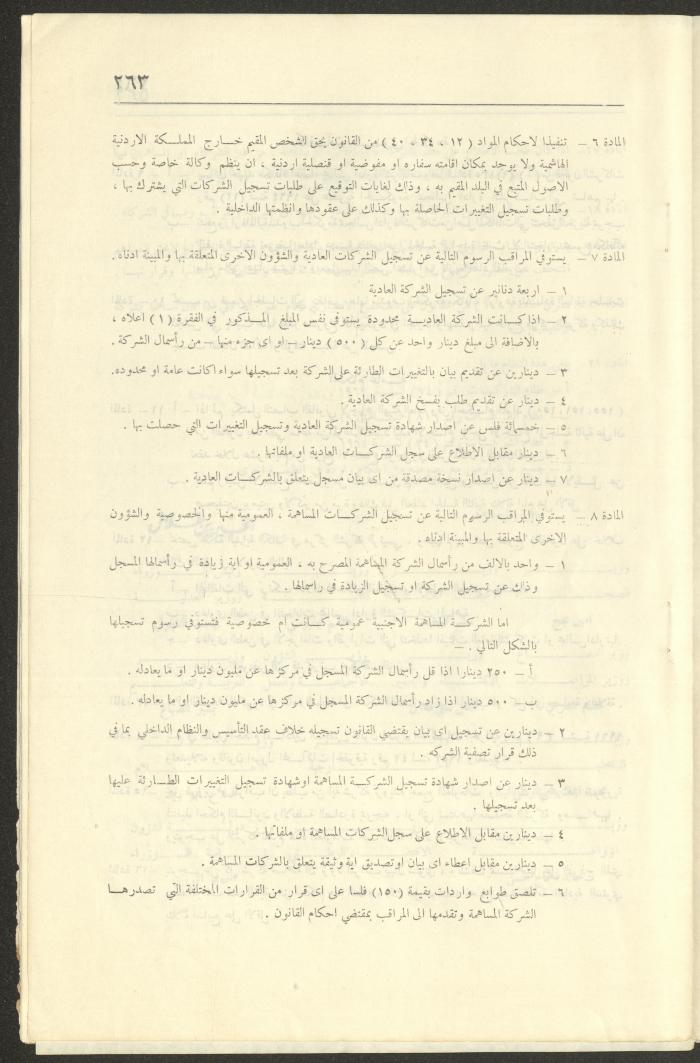 ٢٦٣
المادة ٦ – تنفيذا لاحكام المواد ( ١٢ ، ٣٤ ، ٤٠ ) من القانون يحق الشخص المقيم خــارج المملــكة الاردنية
الهاشمية ولا يوجد بمكان اقامته سفاره او مفوضية او قنصلية اردنية ، ان ينظم وكالة خاصة وحسب
الاصول المتبع في البلد المقيم به ، وذلك لغايات التوقيع على طلبات تسجيل الشركات التي يشترك بها ،
وطلبات تسجيل التغييرات الحاصلة بها وكذلك على عقودها وانظمتها الداخلية .
المادة ٧ – يستوفي المراقب الرسوم التالية عن تسجيل الشركات العادية والشؤون الاخرى المتعلقة بها والمبينة ادناه .
١ – اربعة دنانير عن تسجيل الشركة العادية
٢ – اذا كــانت الشركة العاديــة محدودة يستوفى نفس المبلغ المــذكور في الفقرة ( ١ ) اعلاه ،
بالاضافة الى مبلغ دينار واحد عن كل ( ٥٠٠ ) دينار – او اى جزء منها – من رأسمال الشركة .
٣ – دينارين عن تقديم بيان بالتغييرات الطارئة على الشركة بعد تسجيلها سواء اكانت عامة او محدوده.
٤ – دينار عن تقديم طلب بفسخ الشركة العادية .
٥ – خمسمائة فلس عن اصدار شهادة تسجيل الشركة العادية وتسجيل التغييرات التي حصلت بها .
٦ – دينار مقابل الاطلاع على سجل الشركــات العادية او ملفاتها .
٧ – دينار عن اصدار نسخة مصدقة من اى بيان مسجل يتعلق بالشركــات العادية .
المادة ٨ – يستوفي المراقب الرسوم التالية عن تسجيل الشركــات المساهمة ، العمومية منها والخصوصية والشؤون
الاخرى المتعلقة بها والمبينة ادناه .
١ – واحد بالالف من رأسمال الشركة المساهمة المصرح به ، العمومية او اية زيادة في رأسمالها المسجل
وذاك عن تسجيل الشركة او تسجيل الزيادة في راسمالها .
اما الشركــة المساهمة الاجنبية عمومية كــانت ام خصوصية فتستوفي رسوم تسجيلها
بالشكل التالي . –
أ – ٢٥٠ دينارا اذا قل رأسمال الشركة المسجل في مركزها عن مليون دينار او ما يعادله .
ب – ٥٠٠ دينار اذا زاد رأسمال الشركة المسجل في مركزها عن مليون دينار او ما يعادله .
٢ – دينارين عن تسجيل اى بيان يقتضي القانون تسجيله خلاف عقد التأسيس والنظام الداخلي بما في
ذلك قرار تصفية الشركه .
٣ – دينار عن اصدار شهادة تسجيل الشركــة المساهمة اوشهادة تسجيل التغييرات الطــارئة عليها
بعد تسجيلها .
٤ – دينارين مقابل الاطلاع على سجل الشركات المساهمة او ملفاتها .
٥ – دينارين مقابل اعطاء اى بيان اوتصديق اية وثيقة يتعلق بالشركات المساهمة .
٦ – تلصق طوابع واردات بقيمة (١٥٠) فلسا على اى قرار من القرارات المختلفة التي تصدرهــا
الشركة المساهمة وتقدمها الى المراقب بمقتضي احكام القانون .